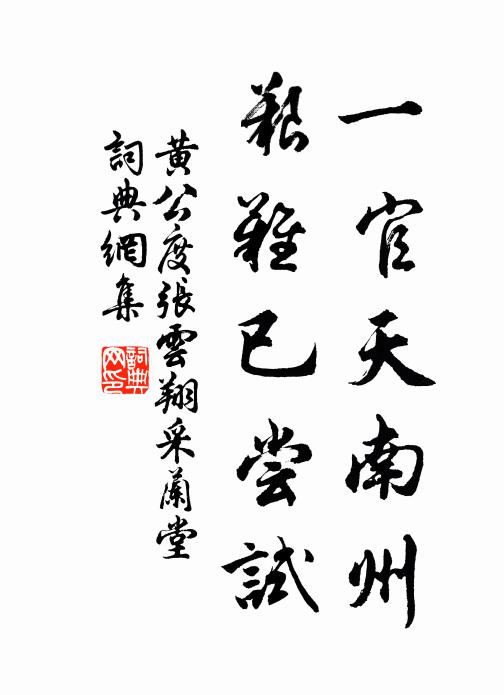 一官天南州
艱難已尝試
黄公度張雲翔采蘭堂
詞典網集
詞典
网印